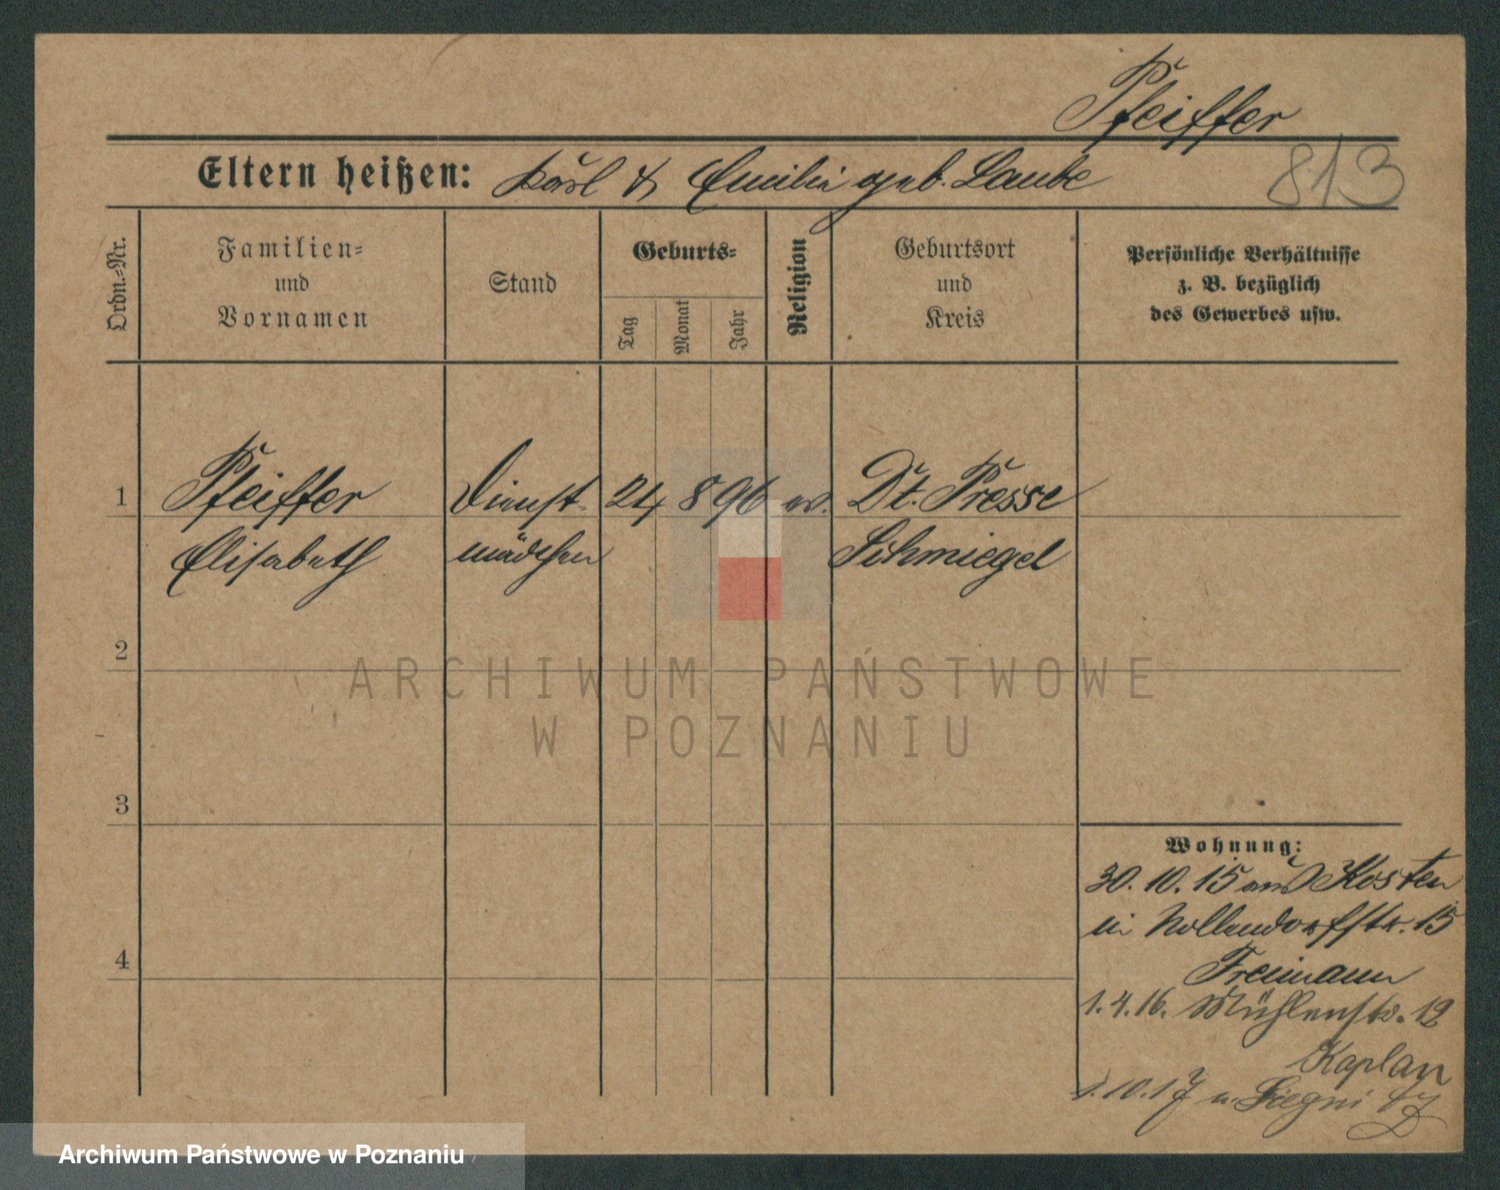 Pfeiffer
Eltern heißen: Karl & Emilie geb. Laube
813
Ordn.=Nr.
Familien=
und
Vornamen
Stand
Geburts=
Tag
Monat
Jahr
Religion
Geburtsort
und
Kreis
Persönliche Verhältnisse
z. B. bezüglich
des Gewerbes usw.
1 Pfeiffer Dienst- 24 8 96 ev. Dt. Presse
Elisabeth mädchen Schmiegel
2
3
4
Wohnung:
30. 10. 15 aus Kosten
in Nollendorfstr. 15
Freimann
1. 4. 16. Mühlenstr. 12
Kaplan
1. 10. 17 n. Liegnitz
ARCHIWUM PAŃSTWOWE
W POZNANIU
Archiwum Państwowe w Poznaniu /